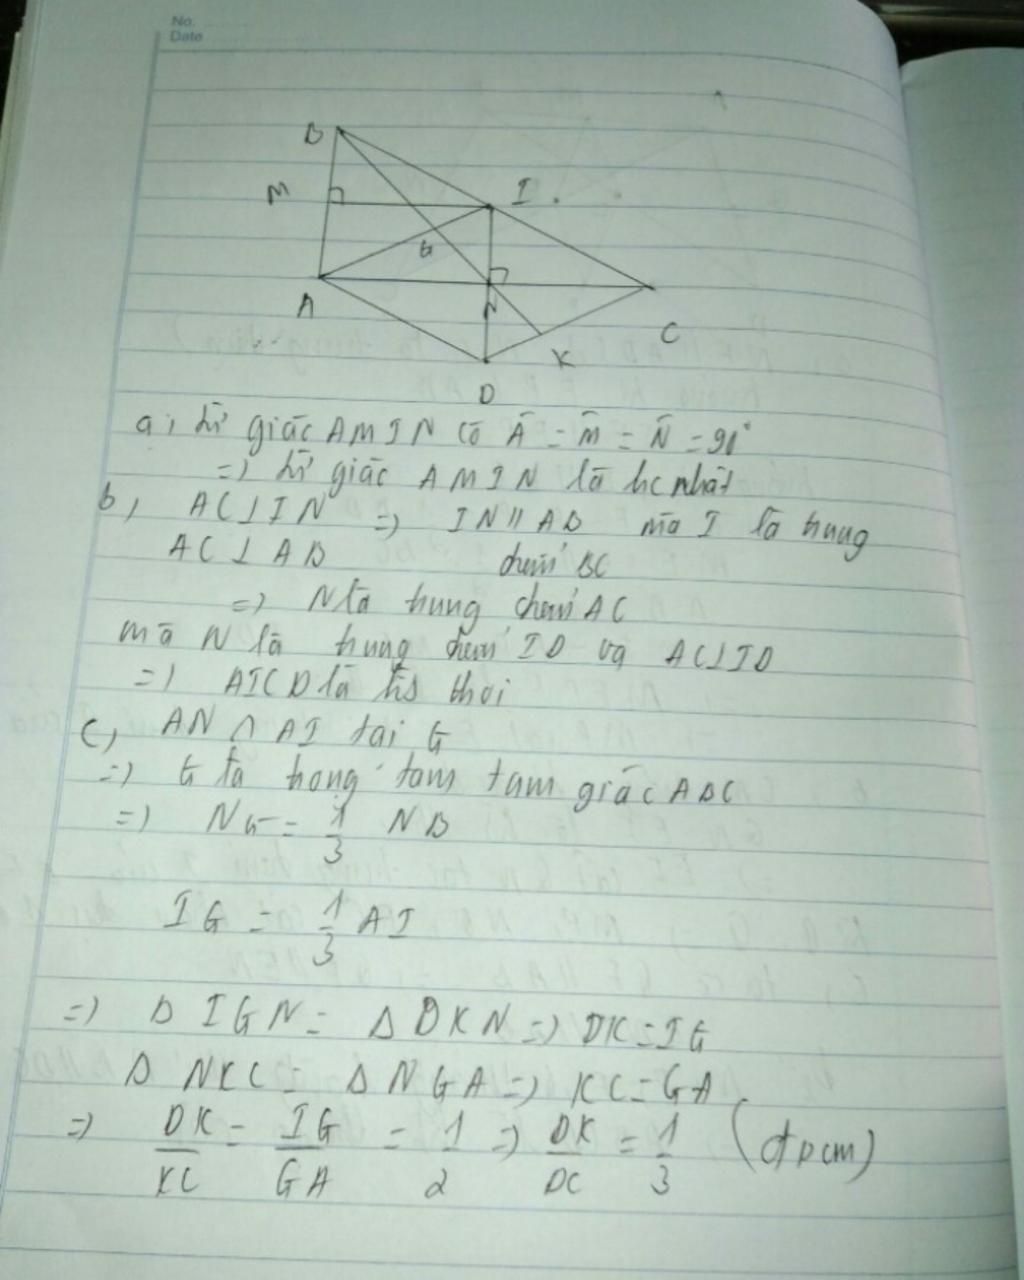 No. ............
Date ............
B
M
I
G
A
N
C
K
D
a, tứ giác AMIN có Â = M̂ = N̂ = 90°
=) tứ giác AMIN là hc nhật
b, AC ⊥ IN =) IN // AB mà I là trung
AC ⊥ AB điểm BC
=) N là trung điểm AC
mà N là trung điểm ID và AC ⊥ ID
=) AICD là hs thoi
c, AN ∩ AI tại G
=) G là trọng tâm tam giác ABC
=) NG = 1/3 NB
IG = 1/3 AI
=) Δ IGN = Δ DKN =) DK = IG
Δ NKC = Δ NGA =) KC = GA
=) DK/KC = IG/GA = 1/2 =) DK/DC = 1/3 (đpcm)